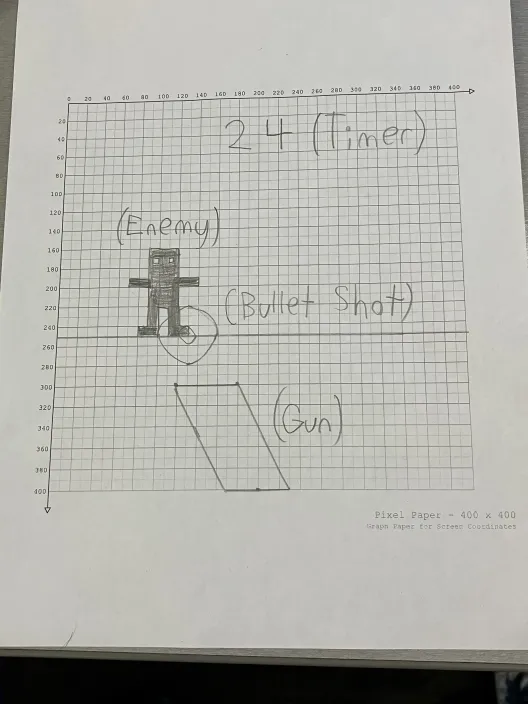 0 20 40 60 80 100 120 140 160 180 200 220 240 260 280 300 320 340 360 380 400
20
40
60
80
100
120
140
160
180
200
220
240
260
280
300
320
340
360
380
400
24 (Timer)
(Enemy)
(Bullet Shot)
(Gun)
Pixel Paper - 400 x 400
Graph Paper for Screen Coordinates